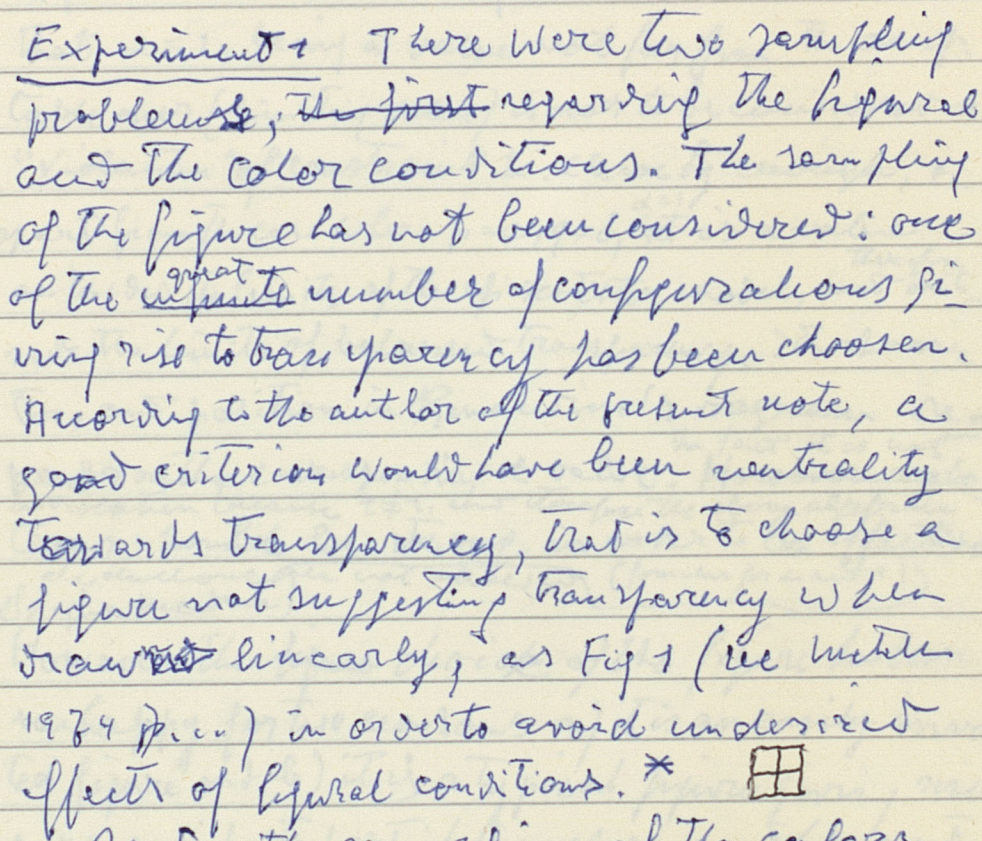 Experiment 1 There were two sampling
problems, the first regarding the figural
and the color conditions. The sampling
of the figure has not been considered: one
of the infinite great number of configurations gi-
ving rise to transparency has been choosen.
According to the author of the present note, a
good criterion would have been neutrality
towards transparency, that is to choose a
figure not suggesting transparency when
drawn linearly, as Fig 1 (see Metelli
1974 p...) in order to avoid undesired
effects of figural conditions. *